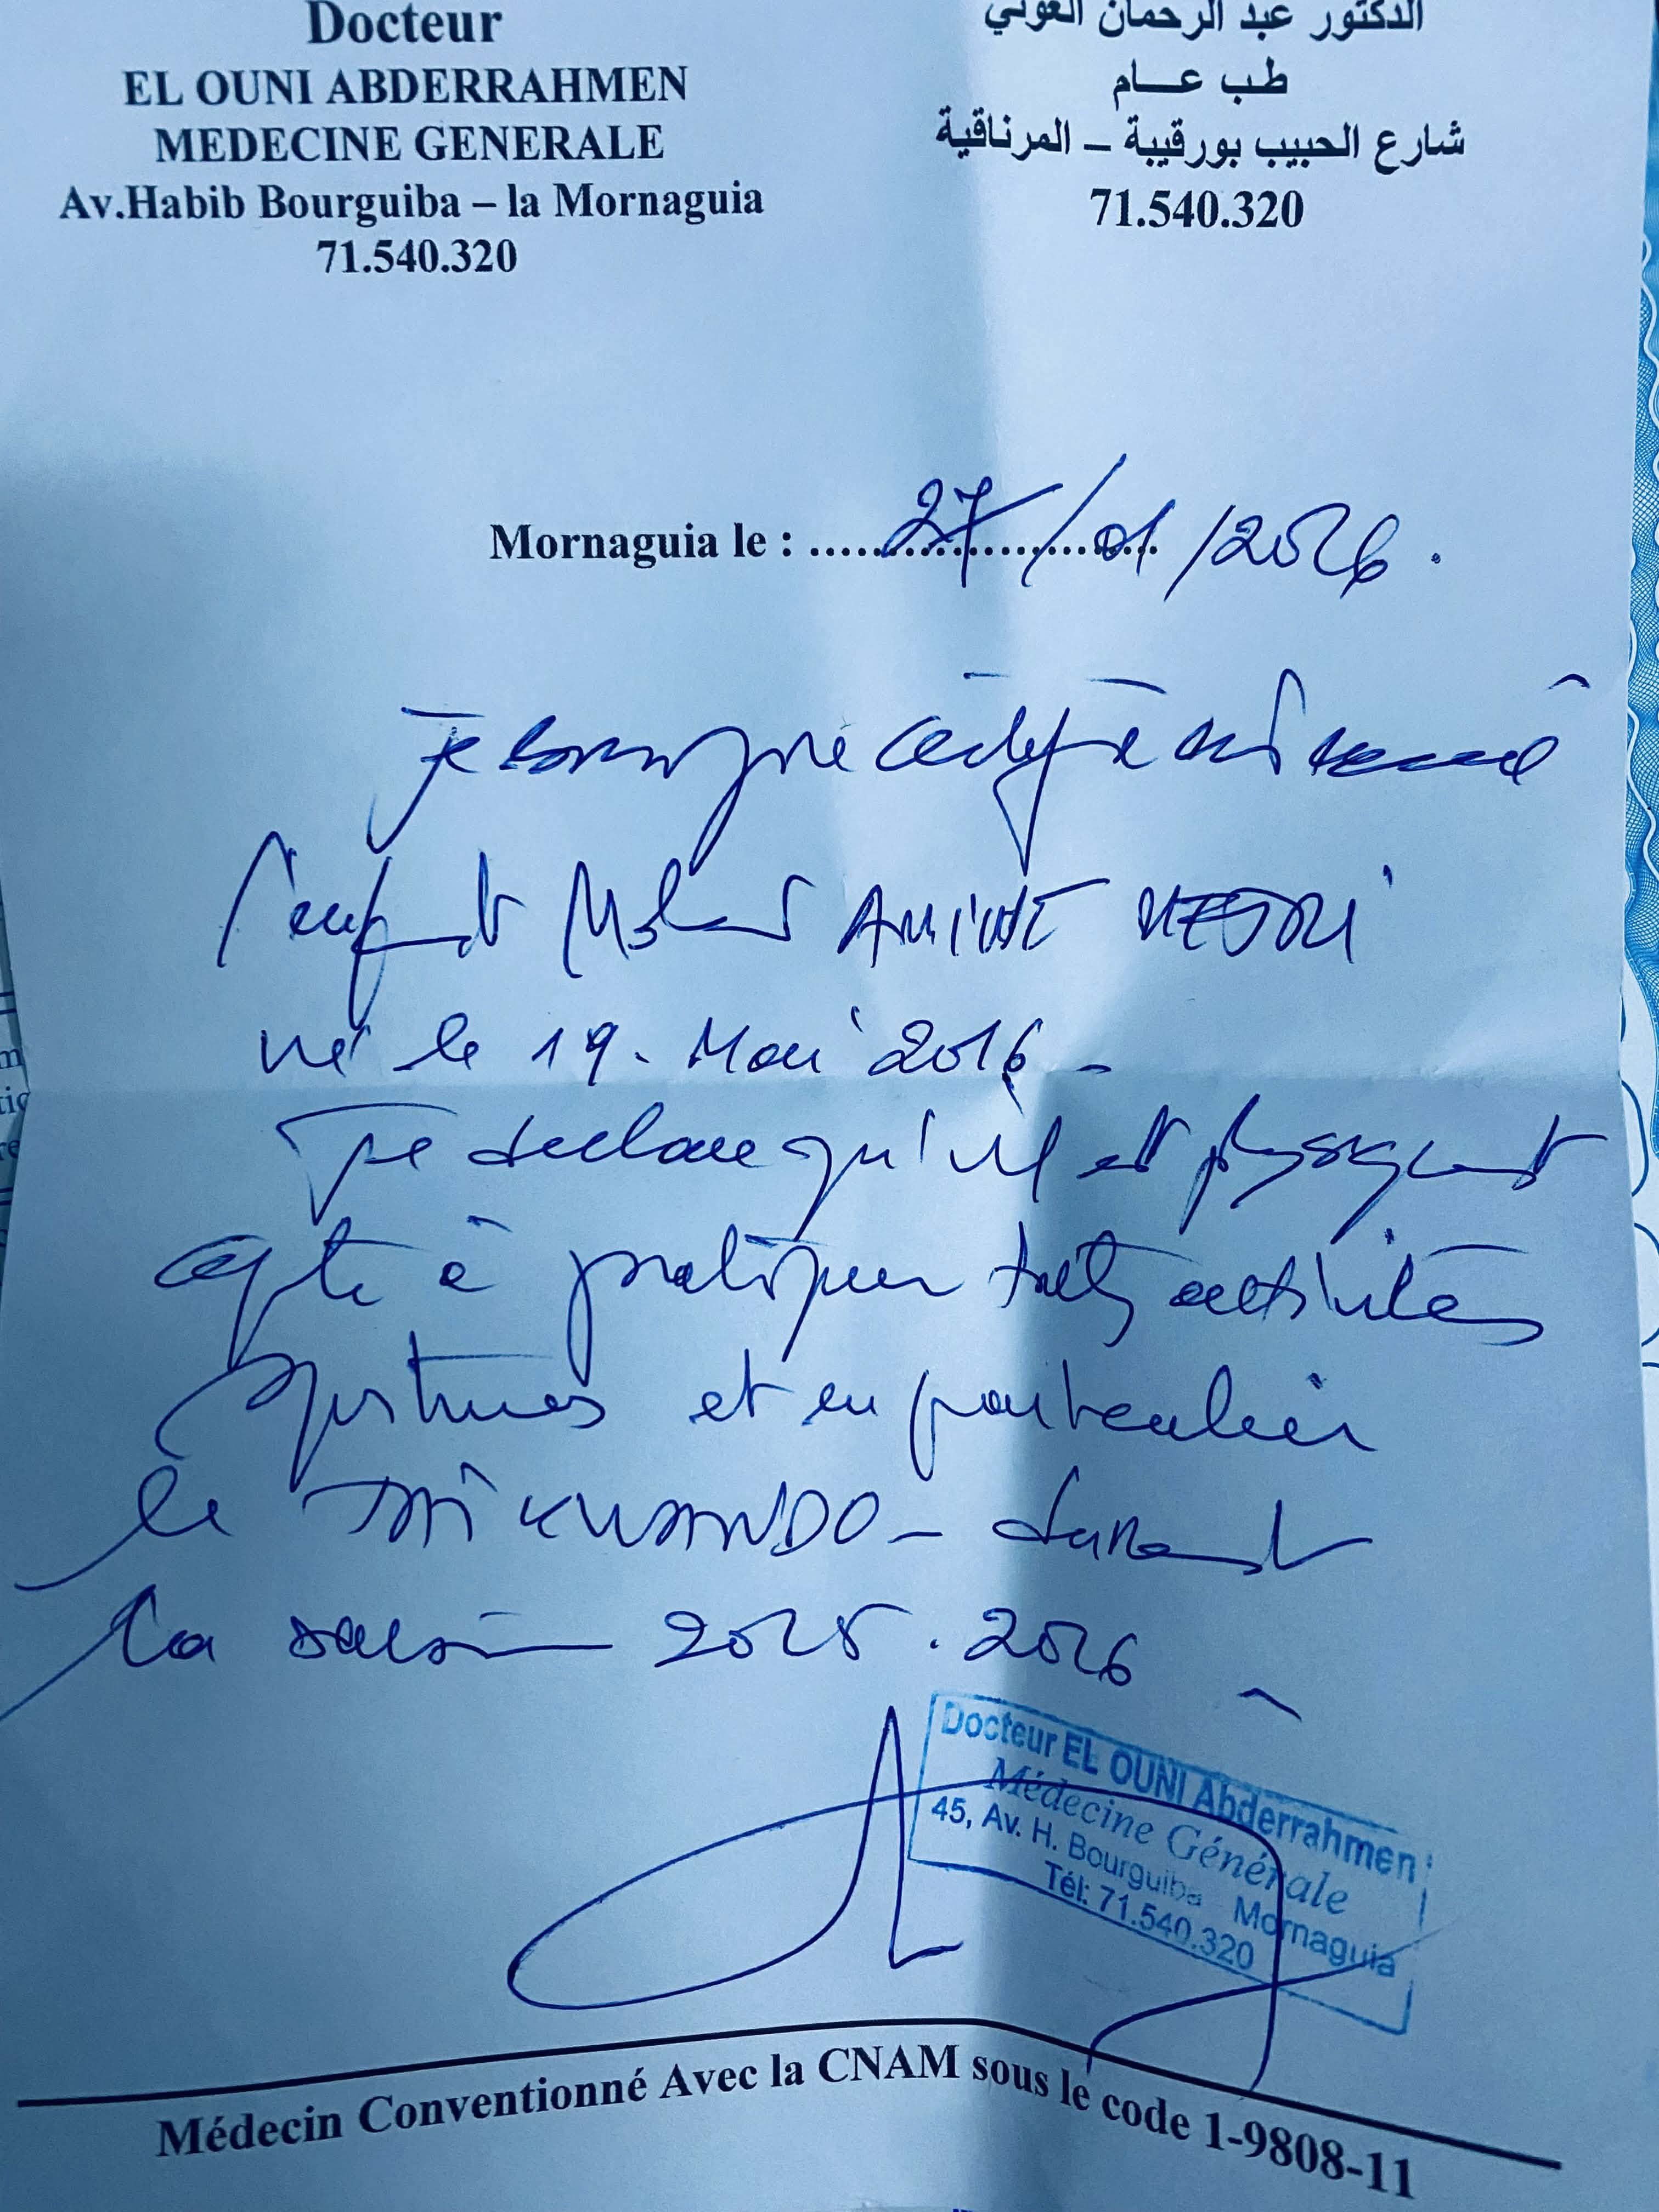 Docteur
EL OUNI ABDERRAHMEN
MEDECINE GENERALE
Av.Habib Bourguiba – la Mornaguia
71.540.320
الدكتور عبد الرحمان العوني
طب عــام
شارع الحبيب بورقيبة – المرناقية
71.540.320
Mornaguia le : 27/01/2026.
Je soussigné certifie
l'enfant Mohamed AMINE
né le 19. Mai 2016 -
Je declare qu'il est physiquement
apte à pratiquer toutes activités
sportives et en particulier
le TAÏKWANDO - durant
la saison 2025. 2026
Docteur EL OUNI Abderrahmen
Médecine Générale
45, Av. H. Bourguiba Mornaguia
Tél: 71.540.320
Médecin Conventionné Avec la CNAM sous le code 1-9808-11